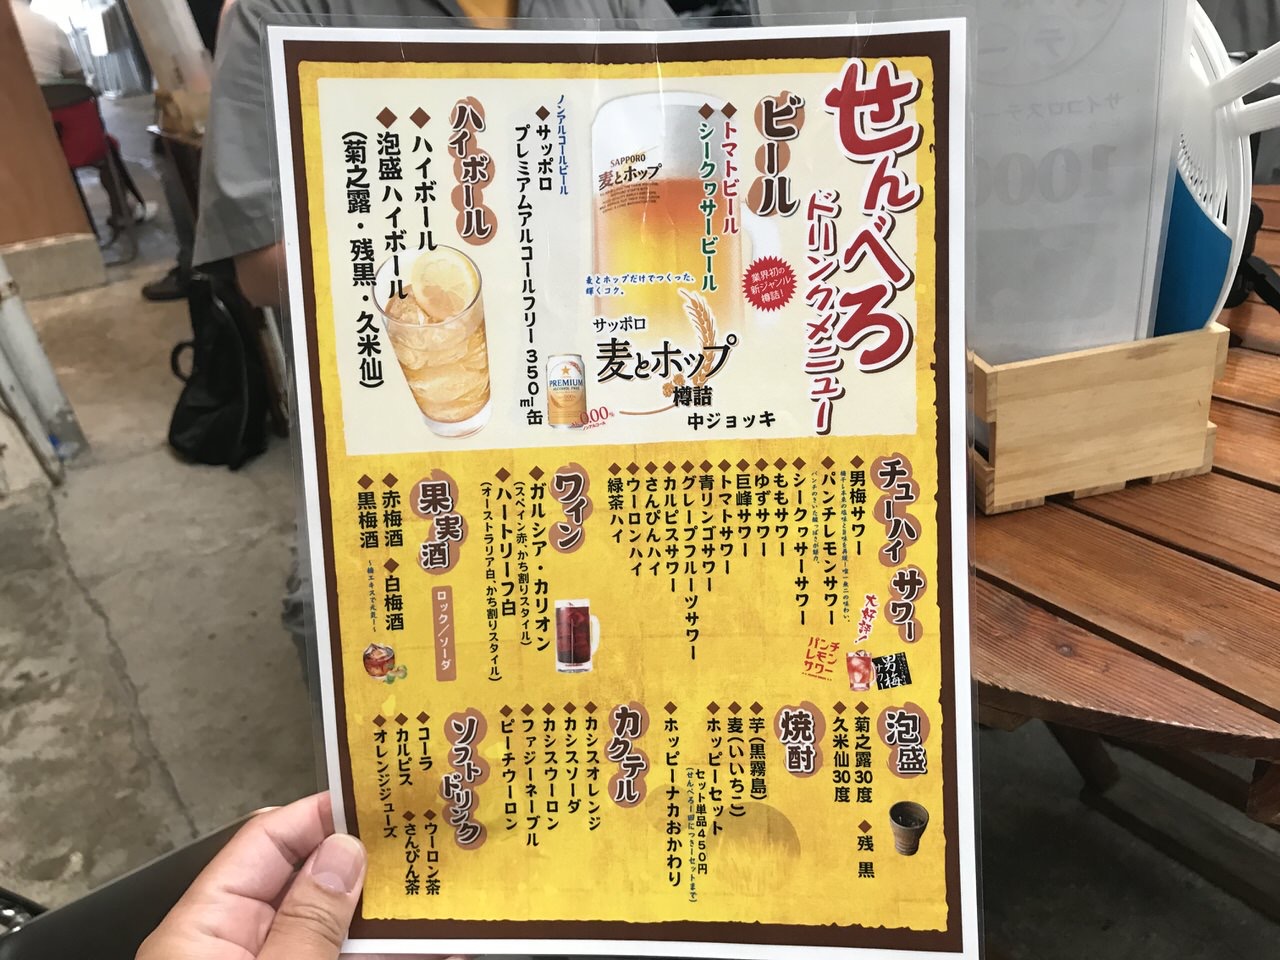 せんべろ
ドリンクメニュー
ビール
◆トマトビール
◆シークヮサービール
業界初の
新ジャンル
樽詰!
SAPPORO
麦とホップ
麦とホップだけでつくった、
輝くコク。
サッポロ
麦とホップ
樽詰
中ジョッキ
ノンアルコールビール
◆サッポロ
プレミアムアルコールフリー 350ml缶
PREMIUM
ALCOHOL FREE
0.00%
ノンアルコール
ハイボール
◆ハイボール
◆泡盛ハイボール
(菊之露・残黒・久米仙)
チューハイ サワー
◆男梅サワー
◆パンチレモンサワー
◆シークヮサーサワー
◆ももサワー
◆ゆずサワー
◆巨峰サワー
◆トマトサワー
◆青リンゴサワー
◆グレープフルーツサワー
◆カルピスサワー
◆さんぴんハイ
◆ウーロンハイ
◆緑茶ハイ
大好評!
パンチ
レモン
サワー
男梅
サワー
ワイン
◆ガルシア・カリオン
(スペイン赤、かち割りスタイル)
◆ハートリーフ白
(オーストラリア白、かち割りスタイル)
果実酒
ロック/ソーダ
◆赤梅酒 ◆白梅酒
◆黒梅酒 ~梅エキスで元気ー~
泡盛
◆菊之露30度 ◆残黒
◆久米仙30度
焼酎
◆芋(黒霧島)
◆麦(いいちこ)
◆ホッピーセット
セット単品450円
(せんべろ一回につき一セットまで)
◆ホッピーナカおかわり
カクテル
◆カシスオレンジ
◆カシスソーダ
◆カシスウーロン
◆ファジーネーブル
◆ピーチウーロン
ソフトドリンク
◆コーラ ◆ウーロン茶
◆カルピス ◆さんぴん茶
◆オレンジジュース